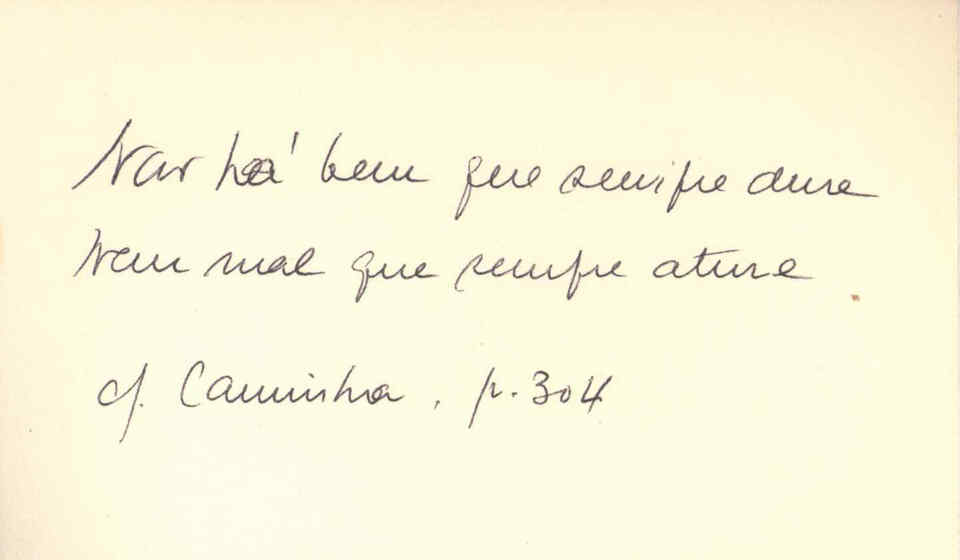 Não há bem que sempre dure
Nem mal que sempre ature
cf. Caminha, p. 304